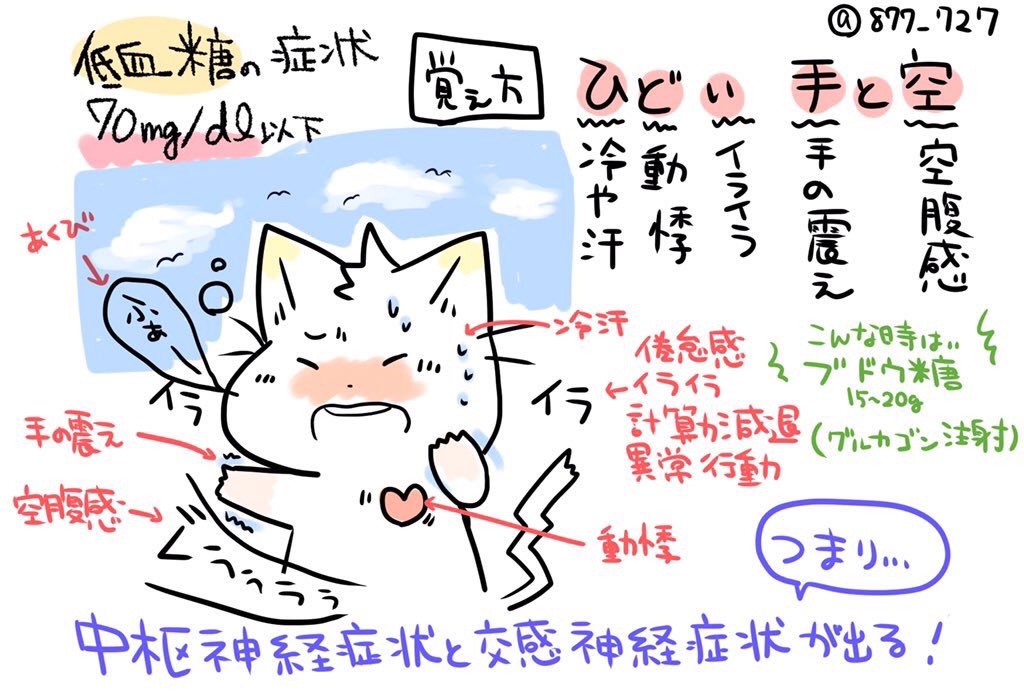 @877_727
低血糖の症状
70mg/dl以下
覚え方
空と手 いどひ
空腹感
手の震え
イライラ
動悸
冷や汗
あくび
ふぁ
イラ
イラ
手の震え
空腹感
フラフラ
冷汗
倦怠感
イライラ
計算力減退
異常行動
動悸
こんな時は..
ブドウ糖
15~20g
(グルカゴン注射)
つまり...
中枢神経症状と交感神経症状が出る!